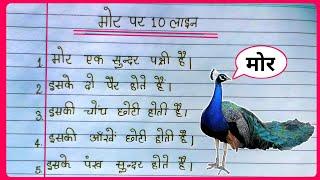 मोर पर 10 लाइन
1. मोर एक सुन्दर पक्षी है।
2. इसके दो पैर होते हैं।
3. इसकी चोंच छोटी होती है।
4. इसकी आँखें छोटी होती हैं।
5. इसके पंख सुन्दर होते हैं।
मोर